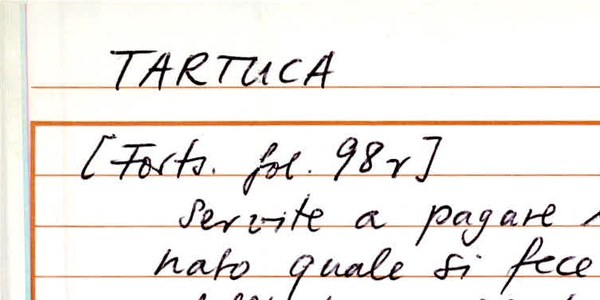 TARTUCA
[Forts. fol. 98r]
servite a pagare
nato quale si fece